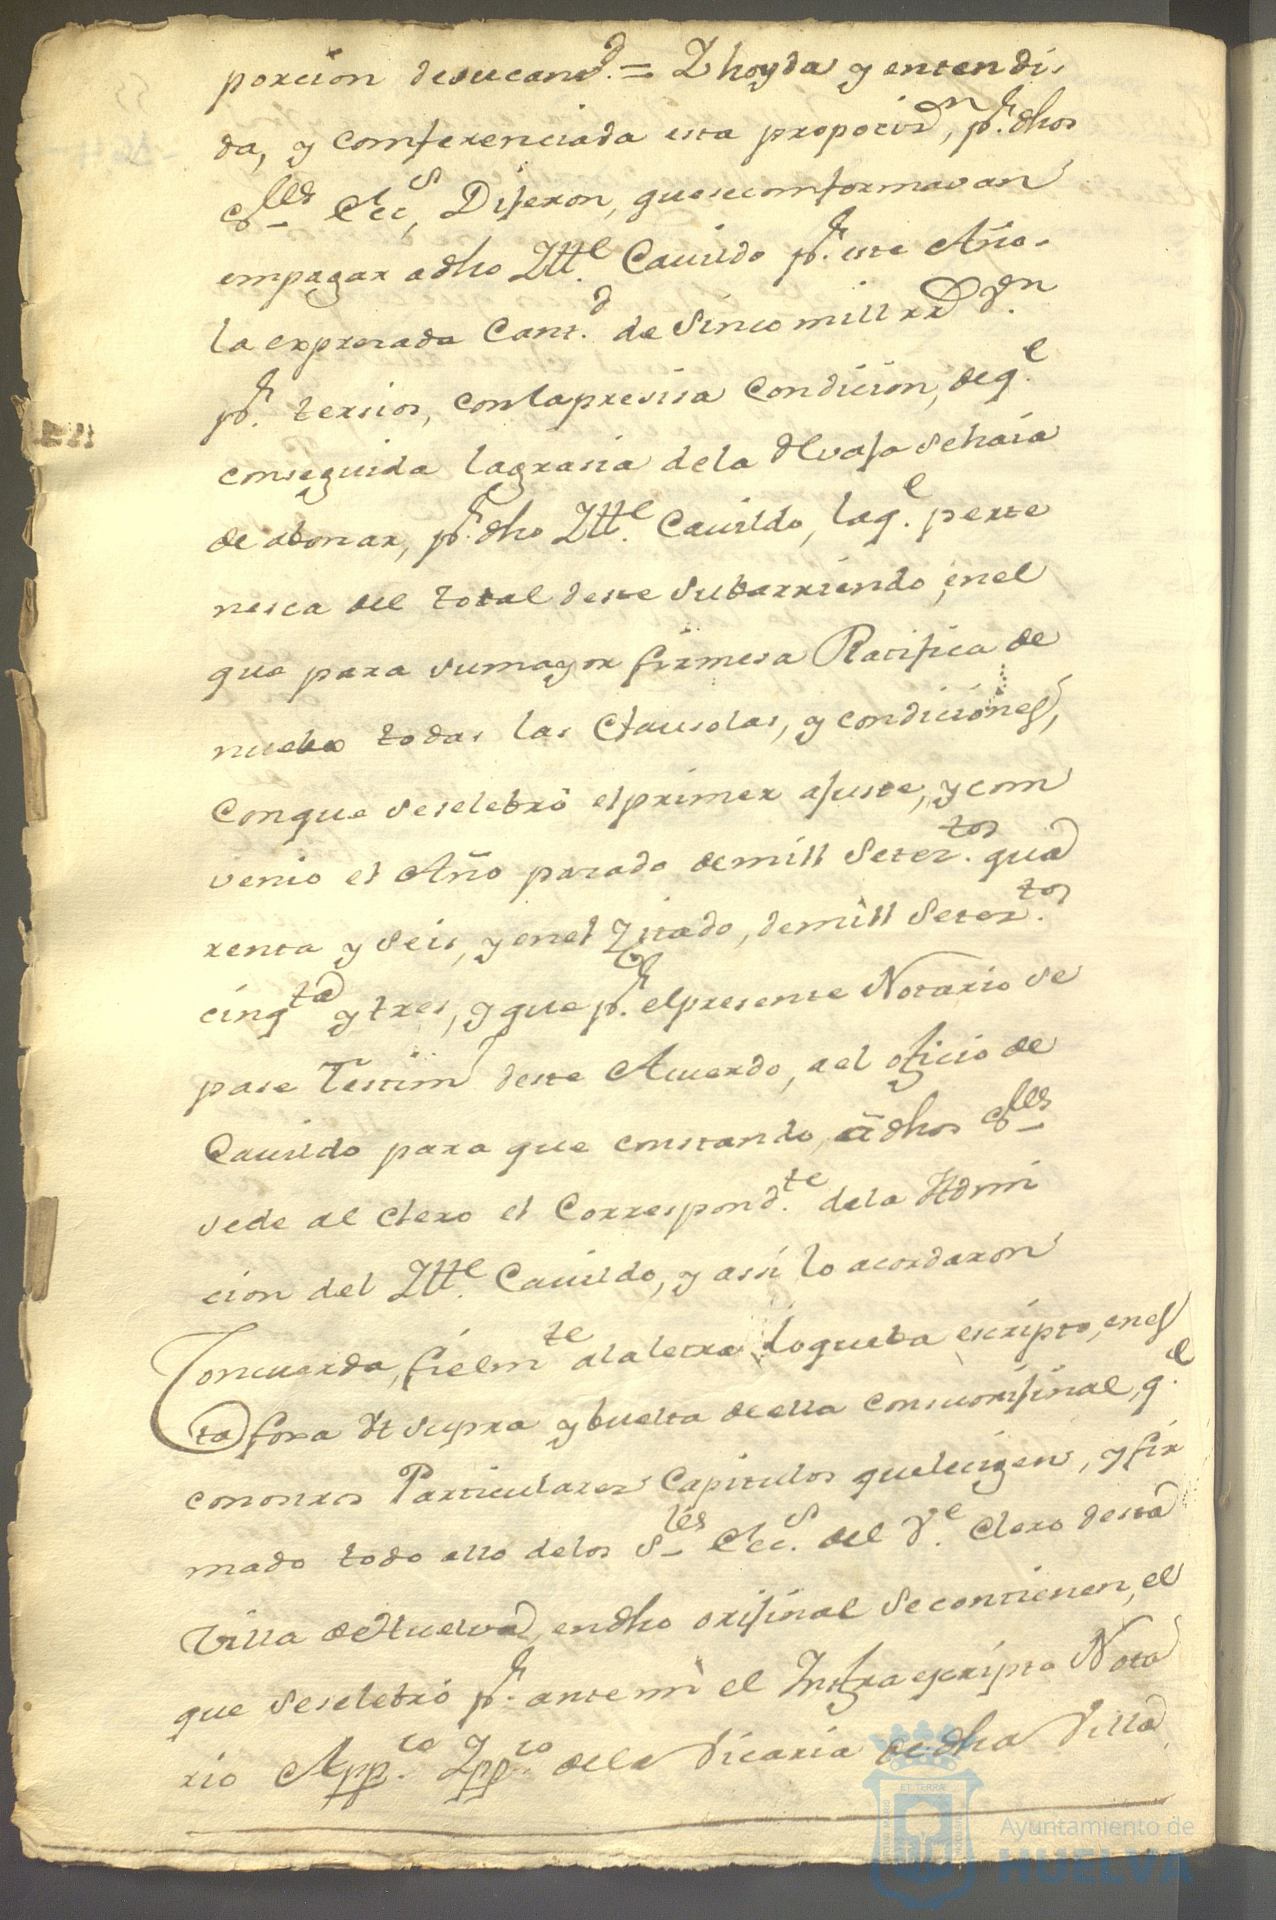 porcion desucant.d = Y hoyda y entendi-
da, y comferenciada esta proposicn, pr. dhos
Sres Eccs, Dijeron, quesecomformavan
empagar adho Ytte. Cavildo pr. este Año
la expresada Cant.d de Sinco mill rrs. d.n
pr. tersios, conlapresisa Condicion, deq.e
conseguida lagrasia dela Revaja Sehaia
de abonar, pr. dho Ytte. Cavildo, laq.e perte
nesca del total deste Subarriendo, enel
que para sumayor firmesa Ratifica de
nuebo todas las Clausolas, y condiciones,
Conque Seselebró elprimer ajuste, y com
venio el Año pasado demill Setez.tos qua
renta y Seis, y enel Zitado, demill Setez.tos
cinqta y tres, y que pr. elpresente Notario se
pase Testim deste Acuerdo, ael oficio de
Cavildo para que constando, a dhos Sres
sede al Clero el Correspond.te dela Admi
cion del Ytte. Cavildo, y assi lo acordaron
Concuerda, fielmte alaletra loqueba escripto, enes
ta foxa Ut supra y buelta deella consuorijinal, q.e
cononrros Particulares Capitulos quelecigen, y fir
mado todo ello delos Sres Ecc.s del Ve. Clero desta
Villa deHuelva, endho orijinal Secontienen, el
que Seselebró pr. antemi el Infraescripto Nota
rio App.co Ypp.co dela Vicaria dedha Villa
ET TERRA
Ayuntamiento de
HUELVA